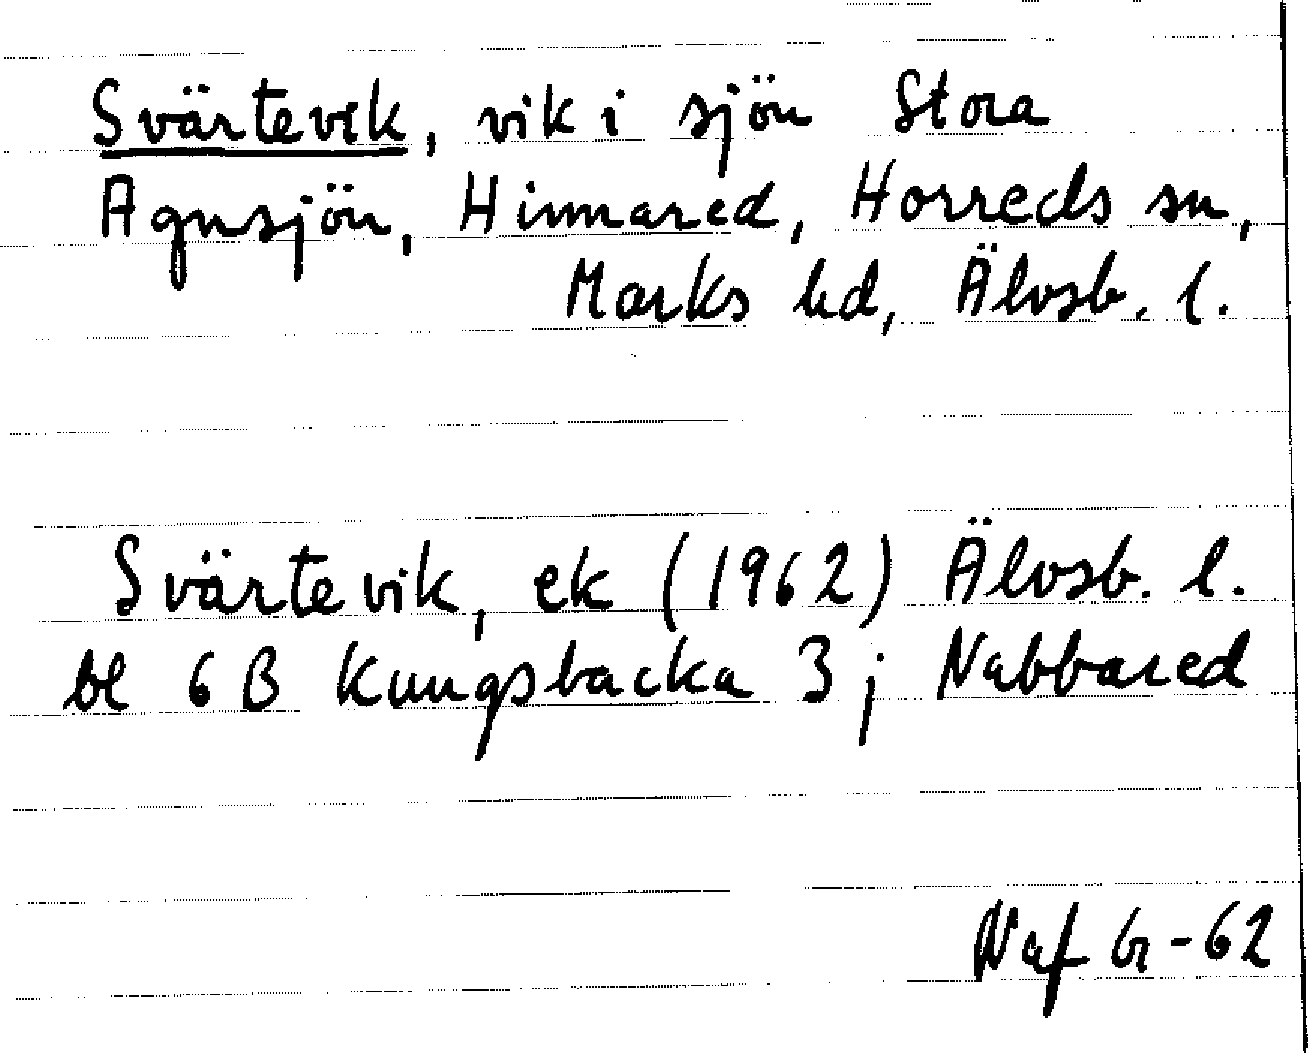 Svärtevik, vik i sjön Stora
Agnsjön, Hinnared, Horreds sn,
Marks hd, Älvsb. l.
Svärtevik, ek (1962) Älvsb. l.
bl 6 B Kungsbacka 3; Nabbared
Naf Gr-62